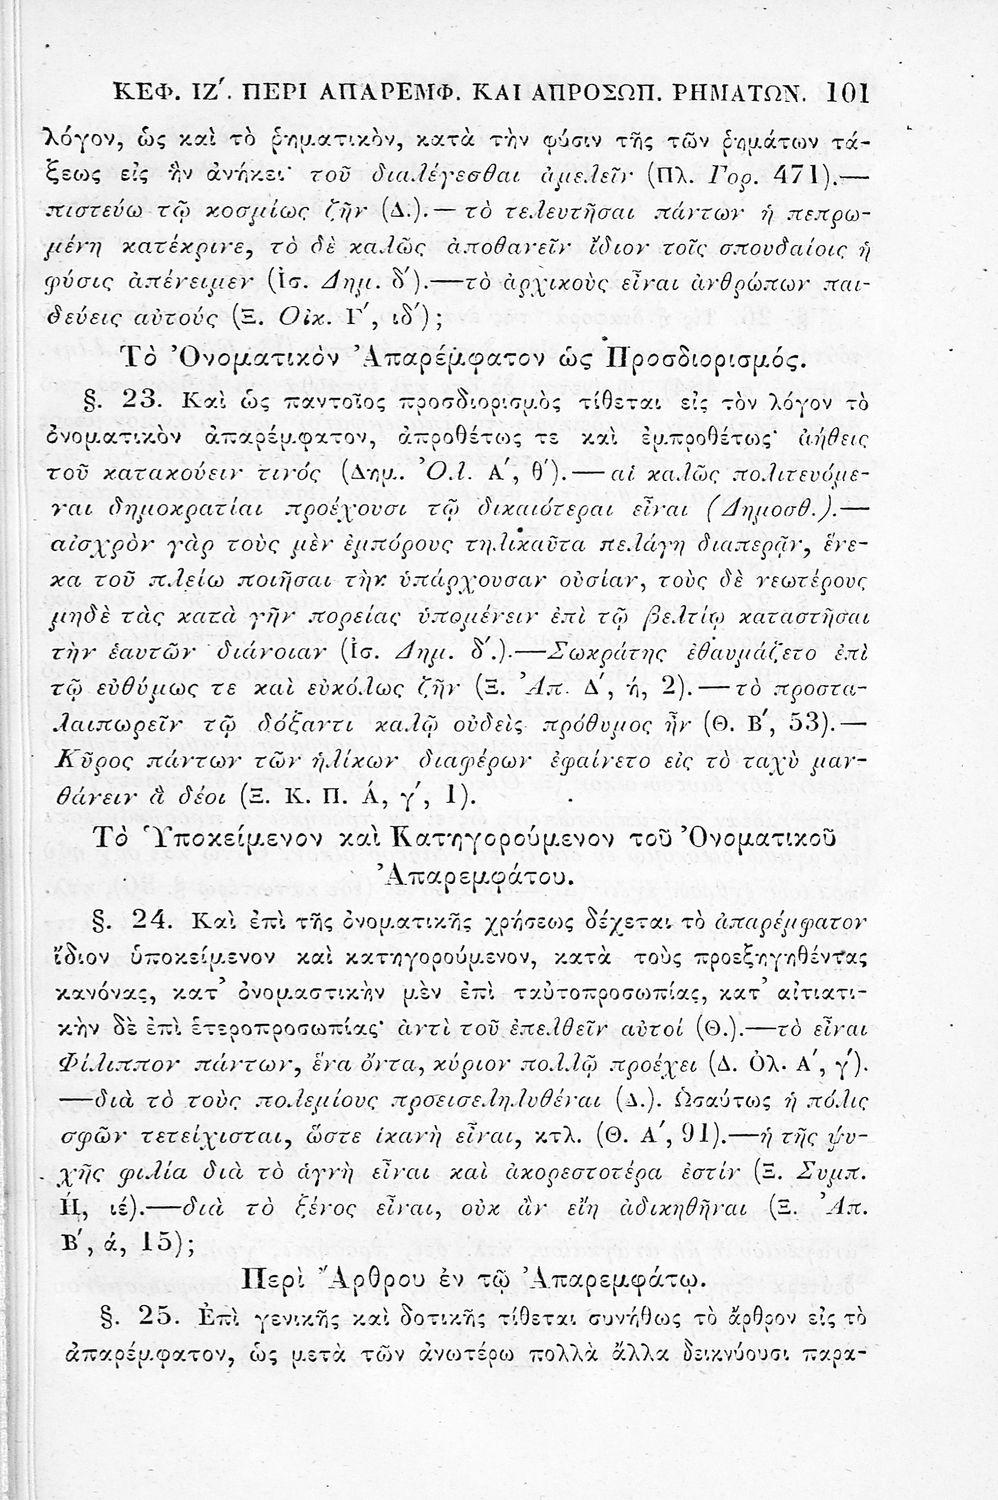 ΚΕΦ. ΙΖ´. ΠΕΡΙ ΑΠΑΡΕΜΦ. ΚΑΙ ΑΠΡΟΣΩΠ. ΡΗΜΑΤΩΝ. 101
λόγον, ὡς καὶ τὸ ῥηματικὸν, κατὰ τὴν φύσιν τῆς τῶν ῥημάτων τά-
ξεως εἰς ἣν ἀνήκει· τοῦ διαλέγεσθαι ἀμελεῖν (Πλ. Γορ. 471).—
πιστεύω τῷ κοσμίως ζῆν (Δ.).—τὸ τελευτῆσαι πάντων ἡ πεπρω-
μένη κατέκρινε, τὸ δὲ καλῶς ἀποθανεῖν ἴδιον τοῖς σπουδαίοις ἡ
φύσις ἀπένειμεν (Ἰσ. Δημ. δ´).—τὸ ἀρχικοὺς εἶναι ἀνθρώπων παι-
δεύεις αὐτούς (Ξ. Οἰκ. Γ´, ιδ´);
Τὸ Ὀνοματικὸν Ἀπαρέμφατον ὡς Προσδιορισμός.
§. 23. Καὶ ὡς παντοῖος προσδιορισμὸς τίθεται εἰς τὸν λόγον τὸ
ὀνοματικὸν ἀπαρέμφατον, ἀπροθέτως τε καὶ ἐμπροθέτως· ἀήθεις
τοῦ κατακούειν τινός (Δημ. Ὀλ. Α´, θ´).—αἱ καλῶς πολιτευόμε-
ναι δημοκρατίαι προέχουσι τῷ δικαιότεραι εἶναι (Δημοσθ.).—
αἰσχρὸν γὰρ τοὺς μὲν ἐμπόρους τηλικαῦτα πελάγη διαπερᾷν, ἕνε-
κα τοῦ πλείω ποιῆσαι τὴν ὑπάρχουσαν οὐσίαν, τοὺς δὲ νεωτέρους
μηδὲ τὰς κατὰ γῆν πορείας ὑπομένειν ἐπὶ τῷ βελτίω καταστῆσαι
τὴν ἑαυτῶν διάνοιαν (Ἰσ. Δημ. δ´.).—Σωκράτης ἐθαυμάζετο ἐπὶ
τῷ εὐθύμως τε καὶ εὐκόλως ζῆν (Ξ. Ἀπ. Δ´, ή, 2).—τὸ προστα-
λαιπωρεῖν τῷ δόξαντι καλῷ οὐδεὶς πρόθυμος ἦν (Θ. Β´, 53).—
Κῦρος πάντων τῶν ἡλίκων διαφέρων ἐφαίνετο εἰς τὸ ταχὺ μαν-
θάνειν ἃ δέοι (Ξ. Κ. Π. Ά, γ´, 1).
Τὸ Ὑποκείμενον καὶ Κατηγορούμενον τοῦ Ὀνοματικοῦ
Ἀπαρεμφάτου.
§. 24. Καὶ ἐπὶ τῆς ὀνοματικῆς χρήσεως δέχεται τὸ ἀπαρέμφατον
ἴδιον ὑποκείμενον καὶ κατηγορούμενον, κατὰ τοὺς προεξηγηθέντας
κανόνας, κατ᾽ ὀνομαστικὴν μὲν ἐπὶ ταὐτοπροσωπίας, κατ᾽ αἰτιατι-
κὴν δὲ ἐπὶ ἑτεροπροσωπίας· ἀντὶ τοῦ ἐπελθεῖν αὐτοί (Θ.).—τὸ εἶναι
Φίλιππον πάντων, ἕνα ὄντα, κύριον πολλῷ προέχει (Δ. Ὀλ. Α´, γ´).
—διὰ τὸ τοὺς πολεμίους προεισεληλυθέναι (Δ.). Ὡσαύτως ἡ πόλις
σφῶν τετείχισται, ὥστε ἱκανὴ εἶναι, κτλ. (Θ. Α´, 91).—ἡ τῆς ψυ-
χῆς φιλία διὰ τὸ ἁγνὴ εἶναι καὶ ἀκορεστοτέρα ἐστίν (Ξ. Συμπ.
Ή, ιέ).—διὰ τὸ ξένος εἶναι, οὐκ ἂν εἴη ἀδικηθῆναι (Ξ. Ἀπ.
Β´, ά, 15);
Περὶ Ἄρθρου ἐν τῷ Ἀπαρεμφάτῳ.
§. 25. Ἐπὶ γενικῆς καὶ δοτικῆς τίθεται συνήθως τὸ ἄρθρον εἰς τὸ
ἀπαρέμφατον, ὡς μετὰ τῶν ἀνωτέρω πολλὰ ἄλλα δεικνύουσι παρα-